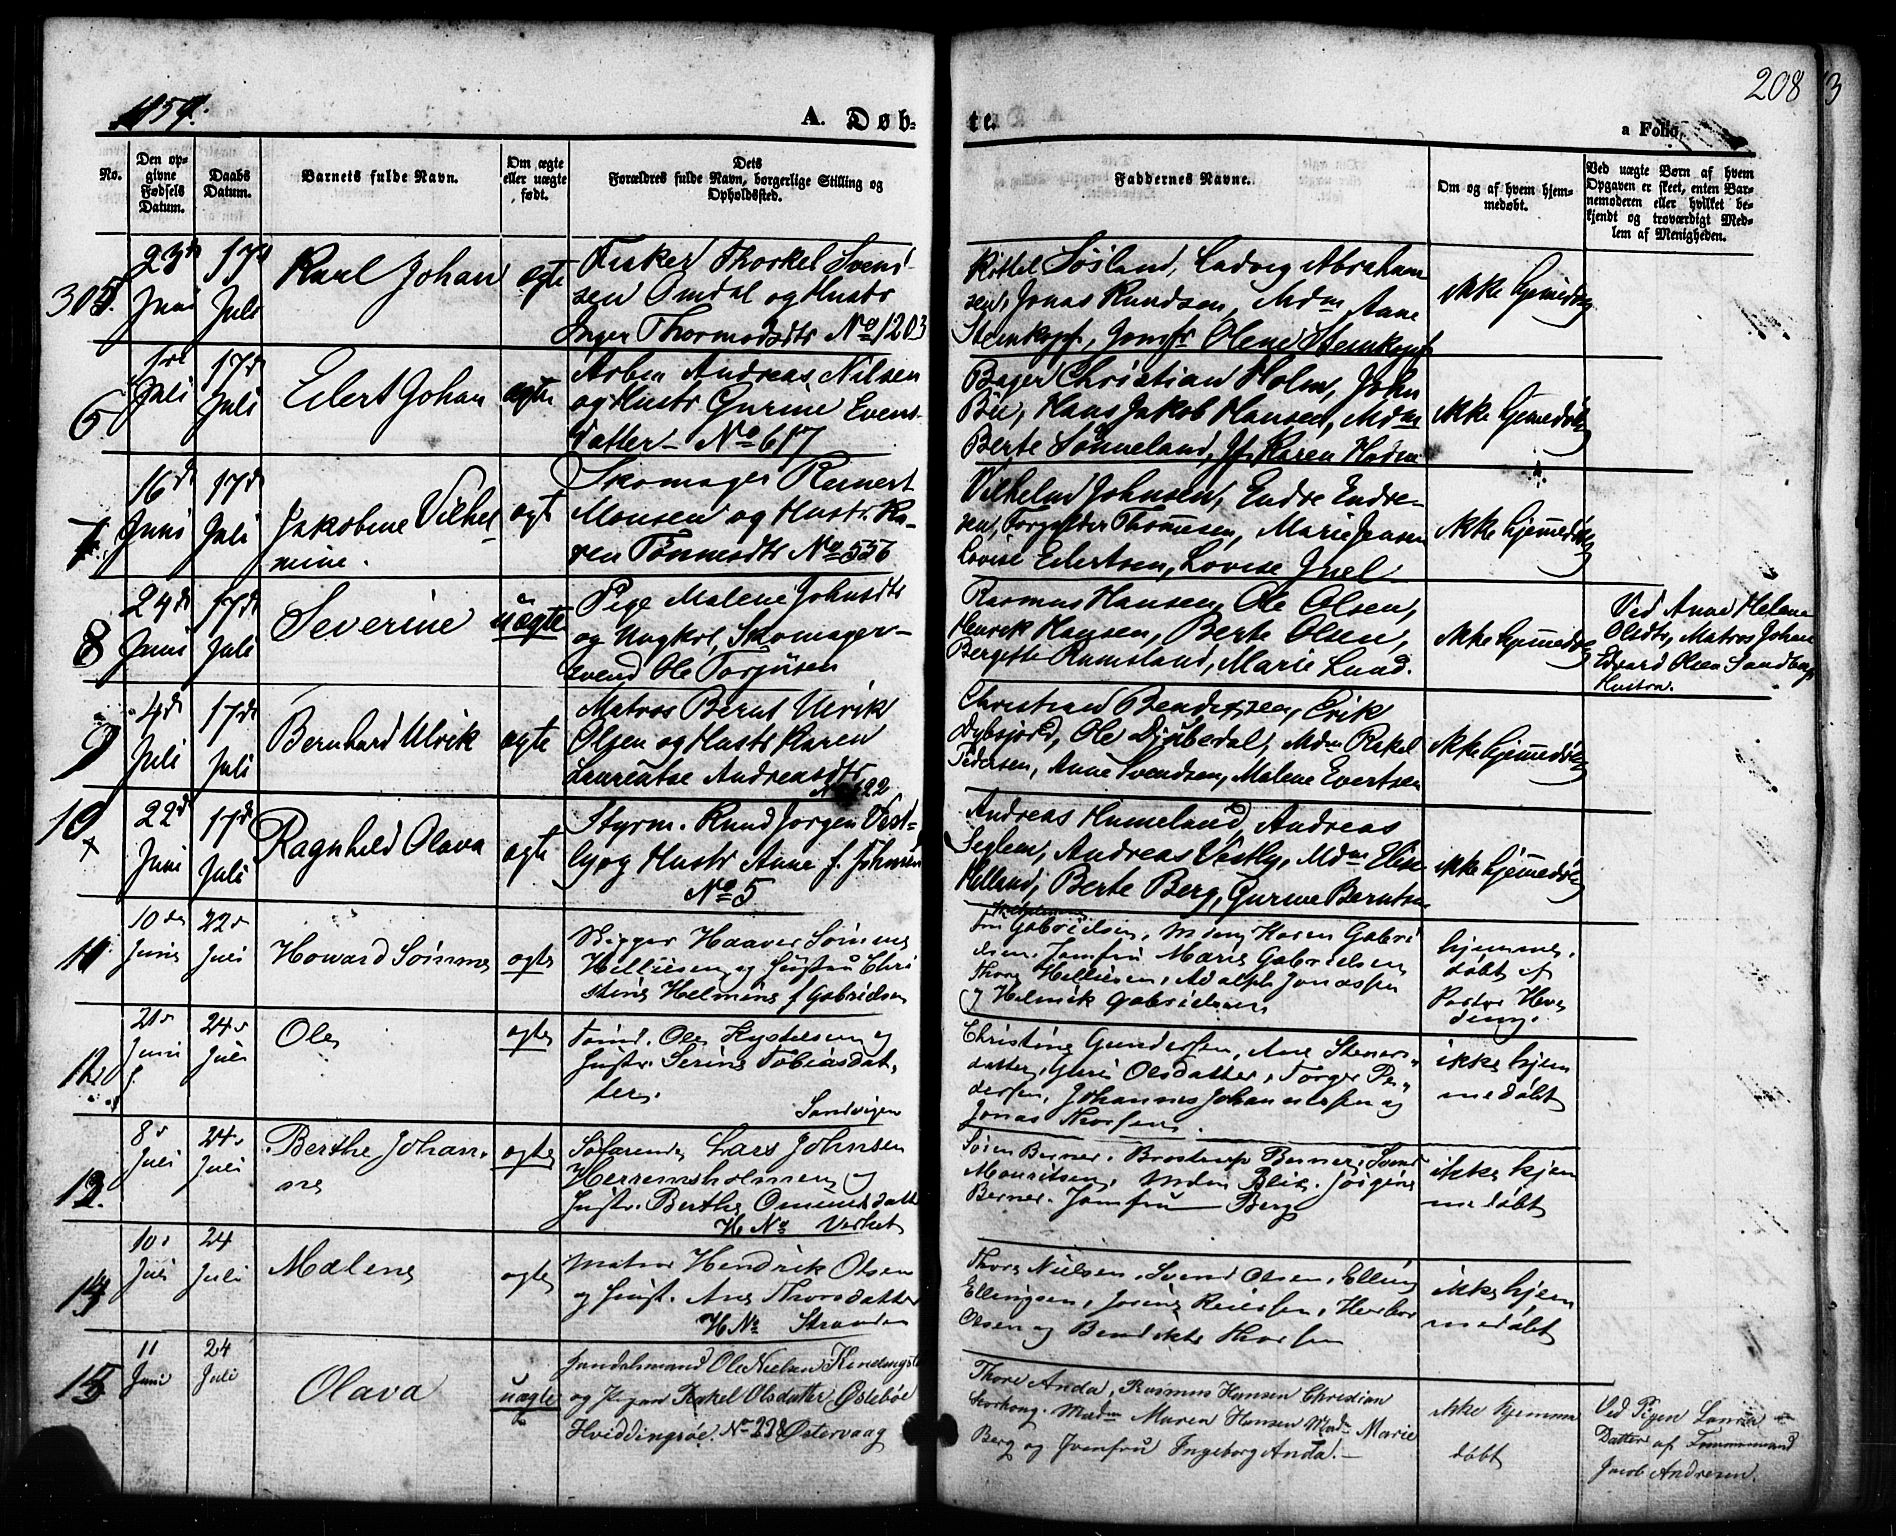 1859.
A. Døb-
te.
208
a Folio
No.
Den op-
givne
Fødsels
Datum.
Daabs
Datum.
Barnets fulde Navn.
Om ægte
eller uægte
født.
Dets
Forældres fulde Navn, borgerlige Stilling og
Opholdssted.
Faddernes Navne.
Om og af hvem hjem-
medøbt.
Ved uægte Børn af hvem
Opgaven er skeet, enten Bar-
nemoderen eller hvilket be-
kjendt og troværdigt Med-
lem af Menigheden.
305.
23d
Juni
17d
Juli
Karl Johan
ægte
Fisker Thorkel Svend-
sen Omdal og Hustr
Inger Thormodsdtr No 1203
Kittel Søiland, Ladvig Abraham
sen, Jonas Knudsen, Mdm Anne
Stenkopf, Jomfr Olene Stenkopf
ikke hjemedøbt
6
1ste
Juli
17d
Juli
Eilert Johan
ægte
Arben Andreas Nilsen
og Hustr Gurine Evens-
datter No 617
Bager Christian Holm, John
Bie, Hans Jakob Hansen, Mdm
Berte Sømmeland, Jf. Karen
ikke hjemedøbt
7
16d
Juni
17d
Juli
Jakobine Vilhel-
mine.
ægt
Skomager Reinert
Monsen og Hustr. Ka-
ren Tønnesdtr No 556
Vilhelm Johnsen, Endre Endre-
sen, Thomesen, Marie Jensen
Lovise Eilertsen, Lovise Juel
ikke hjemmedøbt
8
24d
Juni
17d
Juli
Severine
uægte
Pige Malene Johnsdtr
og Ungkrl, Skomager-
svend Ole Torjusen
Rasmus Hansen, Ole Olsen,
Henrik Hansen, Berte Olsen,
Bergette Ramsland, Marie Lund.
ikke hjemmedøbt
Ved Anne Helene
Olsdtr, Matros Johan
Edvard Olsen Sandbergs
Hustru.
9
4d
Juli
17d
Juli
Bernhard Ulrik
ægte
Matros Bernt Ulrik
Olsen og Hustr Karen
Laurentse Andreasdtr
Christian Bendixsen, Erik
Dybsjord, Ole Djubedal, Mdm Rakel
Pedersen, Anne Svendsen, Malene Evertsen
ikke hjemmedøbt
10
x
22d
Juni
17d
Juli
Ragnhild Olava
ægte
Styrm. Knud Jørgen Vest-
ly og Hustr Anne f. Johnsen
No 5
Andreas Humeland, Andreas
Seglem, Andreas Vestly, Mdm Elise
Helland, Berte Berg, Gurine Berntsen
ikke hjemmedøbt
11
10de
Juni
22d
Juli
Howard Sømme
ægte
Skipper Haaver Sømme
Helliesen og Hustru Chri
stine Helmine f Gabrielsen
Gabrielsen, Karen Gabri
elsen, Jomfru Marie Gabrielsen
Thore Helliesen, Adolph Jonassen
og Helmik Gabrielsen
hjemme-
døbt af
Pastor Hver
ding.
12
21d
Juni
24d
Juli
Ole
ægte
Tømd. Ole Kystelsen og
Hustr. Serine Tobiasdat-
ter.
Sandvigen
Christine Gundersen, Ane Steners-
datter, Guri Olsdatter, Torger Pe-
dersen, Johannes Johannessen og
Jonas Thorsen.
ikke hjem
medøbt
13.
8d
Juli
24d
Juli
Berthe Johan-
ne
ægte
Søfarende Lars Johnsen
Herremsholmen og
Hustr. Berthe Omundsdatt
H No Verket
Søren Berner, Brostrup Berner, Svend
Mouritsen, Mdm Blix, Jørgine
Berner, Jomfru Berg
ikke hjem
medøbt
14
10d
Juli
24
Juli
Malene
ægte
Matros Hendrik Olsen
og Hust. Ane Thorsdatter
H No Stranden
Thore Nielsen, Svend Olsen, Elling
Ellingsen, Josine Reiersen, Herbor
Olsen og Bendikte Thorsen
ikke hjem
medøbt
15
11
Juni
24
Juli
Olava
uægte
Handelsmand Ole Nielsen
og Pigen Rakel Olsdatter Østebøe
Hviddingsøe. No 228 Østervaag
Thore Anda, Rasmus Hansen Christian
Storhoug. Madm Maren Hansen Madm Marie
Berg og Jomfru Ingeborg Anda.
ikke hjemme
døbt
Ved Pigen Laura
Datter af Tømmermand
Jacob Andresen.